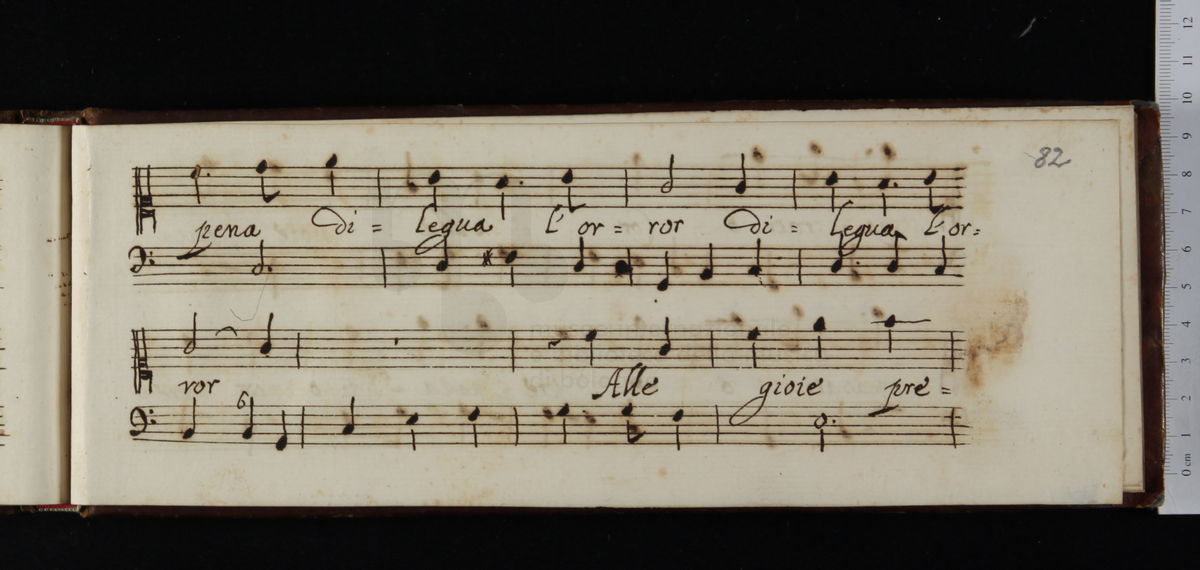 82
pena Di = legua l'or = ror Di = legua l'or =
6
ror Alle gioie pre =
0 cm 1 2 3 4 5 6 7 8 9 10 11 12